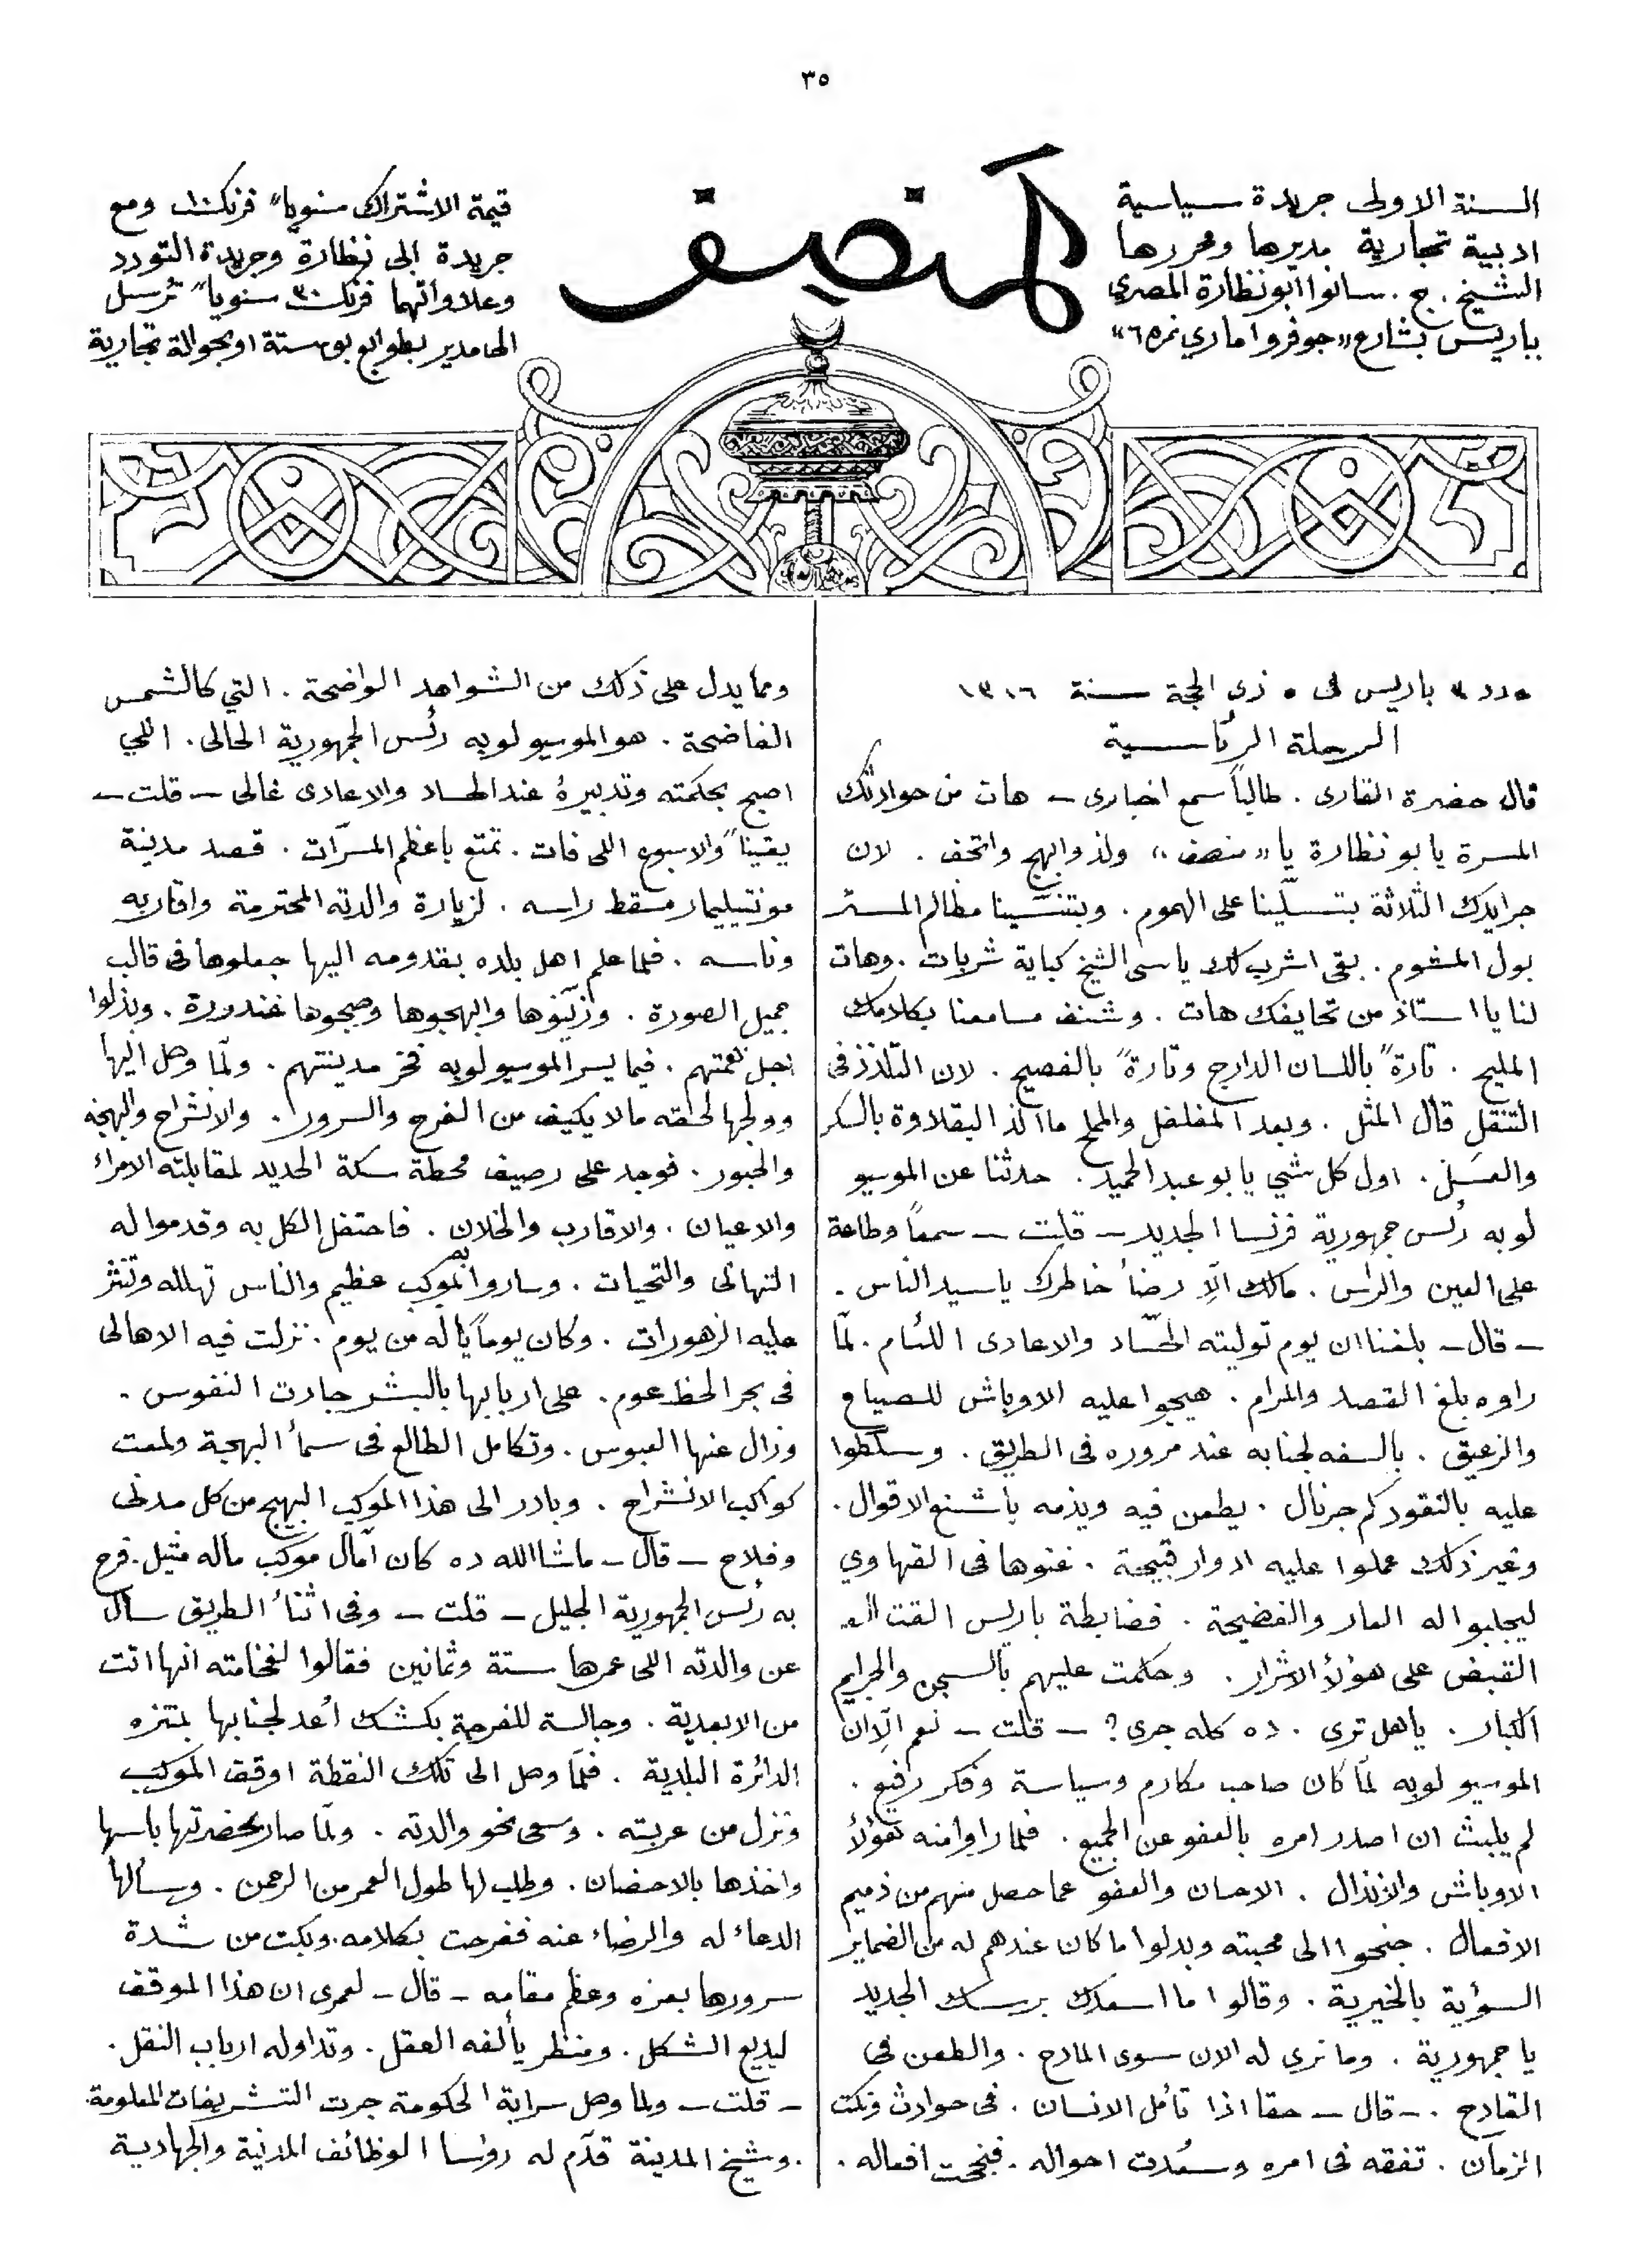 ٣٥
السنة الاولى جريدة سياسية
ادبية تجارية مديرها ومحررها
الشيخ . ج . سانوا ابو نظارة المصري
بباريس بشارع «جوفروا ماري نمره ٦»
المنصف
قيمة الاشتراك سنويا فرنك ١٠ ومع
جريدة ابى نظارة وجريدة التودد
وعلاواتهما فرنك ٣٠ سنويا ترسل
الى مدير بطوابع بوستة او بحوالة تجارية
عدد ٣ باريس فى ٥ ذى الحجة سنة ١٣١٦
الرحلة الرئاسية
قال حضرة القارى . طالباً سمع اخبارى – هات من حوادثك
المسرة يابو نظارة يا «منصف» ولذ وابهج واتحف . لان
جرايدك الثلاثة بتسلّينا على الهموم . وبتنسّينا مظالم المستر
بول المشوم . بقى اشرب لك ياسى الشيخ كباية شربات . وهات
لنا يا استاذ من تحايفك هات . وشنف مسامعنا بكلامك
المليح . تارةً باللسان الدارج وتارةً بالفصيح . لان التلذذ فى
التنقل قال المثل . وبعد المفلفل والمملح ما الذ البقلاوة بالسكر
والعسل . اول كل شي يابو عبد الحميد . حدثنا عن الموسيو
لوبه رئس جمهورية فرنسا الجديد – قلت – سمعاً وطاعة
على العين والراس . مالك الّا رضاء خاطرك ياسيد الناس .
– قال – بلغنا ان يوم توليته الحسّاد والاعادى اللئام . لمّا
راوه بلغ القصد والمرام . هيجوا عليه الاوباش للصياع
والزعيق . بالسفه لجنابه عند مروره فى الطريق . وسلّطوا
عليه بالنقود كم جرنال . يطعن فيه ويذمه باشنع الاقوال .
وغير ذلك عملوا عليه ادوار قبيحة . غنوها فى القهاوي
ليجلبوا له العار والفضيحة . فضابطة باريس القت
القبض على هؤلاء الاشرار . وحكمت عليهم بالسجن والجرايم
الكبار . ياهل ترى . ده كله جرى ؟ – قلت – نعم الّا ان
الموسيو لوبه لمّا كان صاحب مكارم وسياسة وفكر رفيع .
لم يلبث ان اصدر امره بالعفو عن الجميع . فلما راوا منه هؤلاء
الاوباش والانذال . الاحسان والعفو عما حصل منهم من ذميم
الافعال . جنحوا الى محبته وبدلوا ما كان عندهم له من الضماير
السوئية بالخيرية . وقالوا ما اسعدك بريسك الجديد
يا جمهورية . وما نرى له الان سوى المادح . والطعن فى
القادح . – قال – حقا اذا تأمل الانسان . فى حوادث ونكت
الزمان . تفقه فى امره وسعُدت احواله . فنجحت افعاله .
ومما يدل على ذلك من الشواهد الواضحة . التي كالشمس
الفاضحة . هو الموسيو لوبه رئس الجمهورية الحالى . اللي
اصبح بحكمته وتدبيره عند الحساد والاعادى غالى – قلت –
يقيناً والاسبوع اللى فات . تمتع باعظم المسرّات . قصد مدينة
مونتيليمار مسقط راسه . لزيارة والدته المحترمة واقاربه
وناسه . فلما علم اهل بلده بقدومه اليها جعلوها فى قالب
جميل الصورة . وزيّنوها وابهجوها وصبحوها غندورة . وبذلوا
اجل همتهم . فيما يسر الموسيو لوبه فخر مدينتهم . ولمّا وصل اليها
وولجها لحقته ما لا يكيف من الفرح والسرور . والانشراح والبهجة
والحبور . فوجد على رصيف محطة سكة الحديد لمقابلته الامراء
والاعيان . والاقارب والخلان . فاحتفل الكل به وقدموا له
التهانى والتحيات . وساروا به بموكب عظيم والناس تهلله وتنثر
عليه الزهورات . وكان يوماً ياله من يوم . نزلت فيه الاهالى
فى بحر الحظ عوم . على اربابها بالبشر جادت النفوس .
وزال عنها العبوس . وتكامل الطالع فى سماء البهجة ولمعت
كواكب الانشراح . وبادر الى هذا الموكب البهيج من كل مدنى
وفلاح – قال – ماشاالله ده كان امّال موكب ماله مثيل . فرح
به رئس الجمهورية الجليل – قلت – وفى اثناء الطريق سأل
عن والدته اللى عمرها ستة وثمانين فقالوا لفخامته انها اتت
من الابعدية . وجالسة للفرجة بكشك أُعد لجنابها بمتنزه
الدائرة البلدية . فلمّا وصل الى تلك النقطة اوقف الموكب
ونزل من عربيته . وسعى نحو والدته . ولمّا صار بحضرتها باسها
واخذها بالاحضان . وطلب لها طول العمر من الرحمن . وسألها
الدعاء له والرضاء عنه ففرحت بكلامه . وبكت من شدة
سرورها بعزه وعظم مقامه – قال – لعمرى ان هذا الموقف
لبديع الشكل . ومنظر يألفه العقل . وتداوله ارباب النقل .
– قلت – ولما وصل سراية الحكومة جرت التشريفات المعلومة .
. وشيخ المدينة قدّم له رؤسا الوظائف المدنية والجهادية